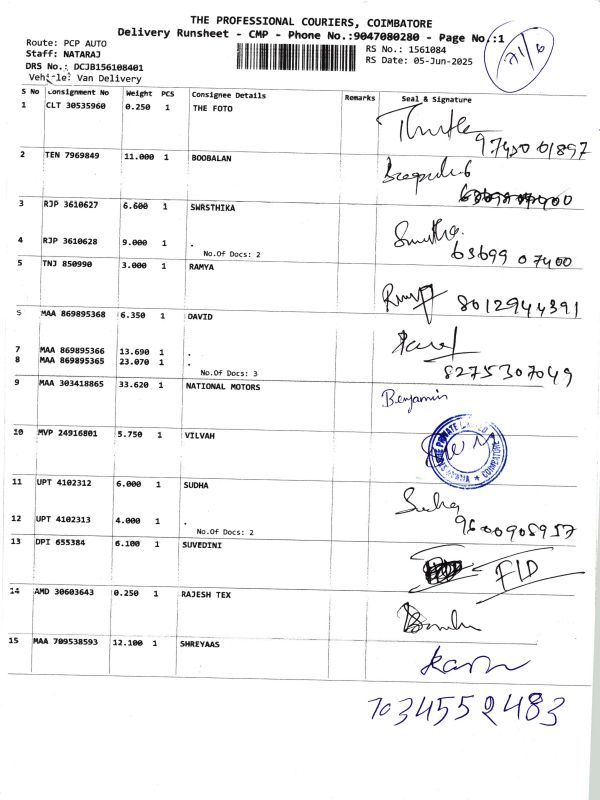 THE PROFESSIONAL COURIERS, COIMBATORE
Delivery Runsheet - CMP - Phone No.:9047080280 - Page No.:1
Route: PCP AUTO
RS No.: 1561084
Staff: NATARAJ
RS Date: 05-Jun-2025
DRS No.: DCJB156108401
Vehicle: Van Delivery
S No Consignment No Weight PCS Consignee Details Remarks Seal & Signature
1 CLT 30535960 0.250 1 THE FOTO
2 TEN 7969849 11.000 1 BOOBALAN
3 RJP 3610627 6.600 1 SWRSTHIKA
4 RJP 3610628 9.000 1 .
No.Of Docs: 2
63699 07400
5 TNJ 850990 3.000 1 RAMYA
8012944391
MAA 869895368 6.350 1 DAVID
7 MAA 869895366 13.690 1 .
8 MAA 869895365 23.070 1 .
No.Of Docs: 3
8275307049
9 MAA 303418865 33.620 1 NATIONAL MOTORS
Benjamin
10 MVP 24916801 5.750 1 VILVAH
11 UPT 4102312 6.000 1 SUDHA
Sudha
12 UPT 4102313 4.000 1 .
No.Of Docs: 2
9600905957
13 DPI 655384 6.100 1 SUVEDINI
14 AMD 30603643 0.250 1 RAJESH TEX
15 MAA 709538593 12.100 1 SHREYAAS
7034552483